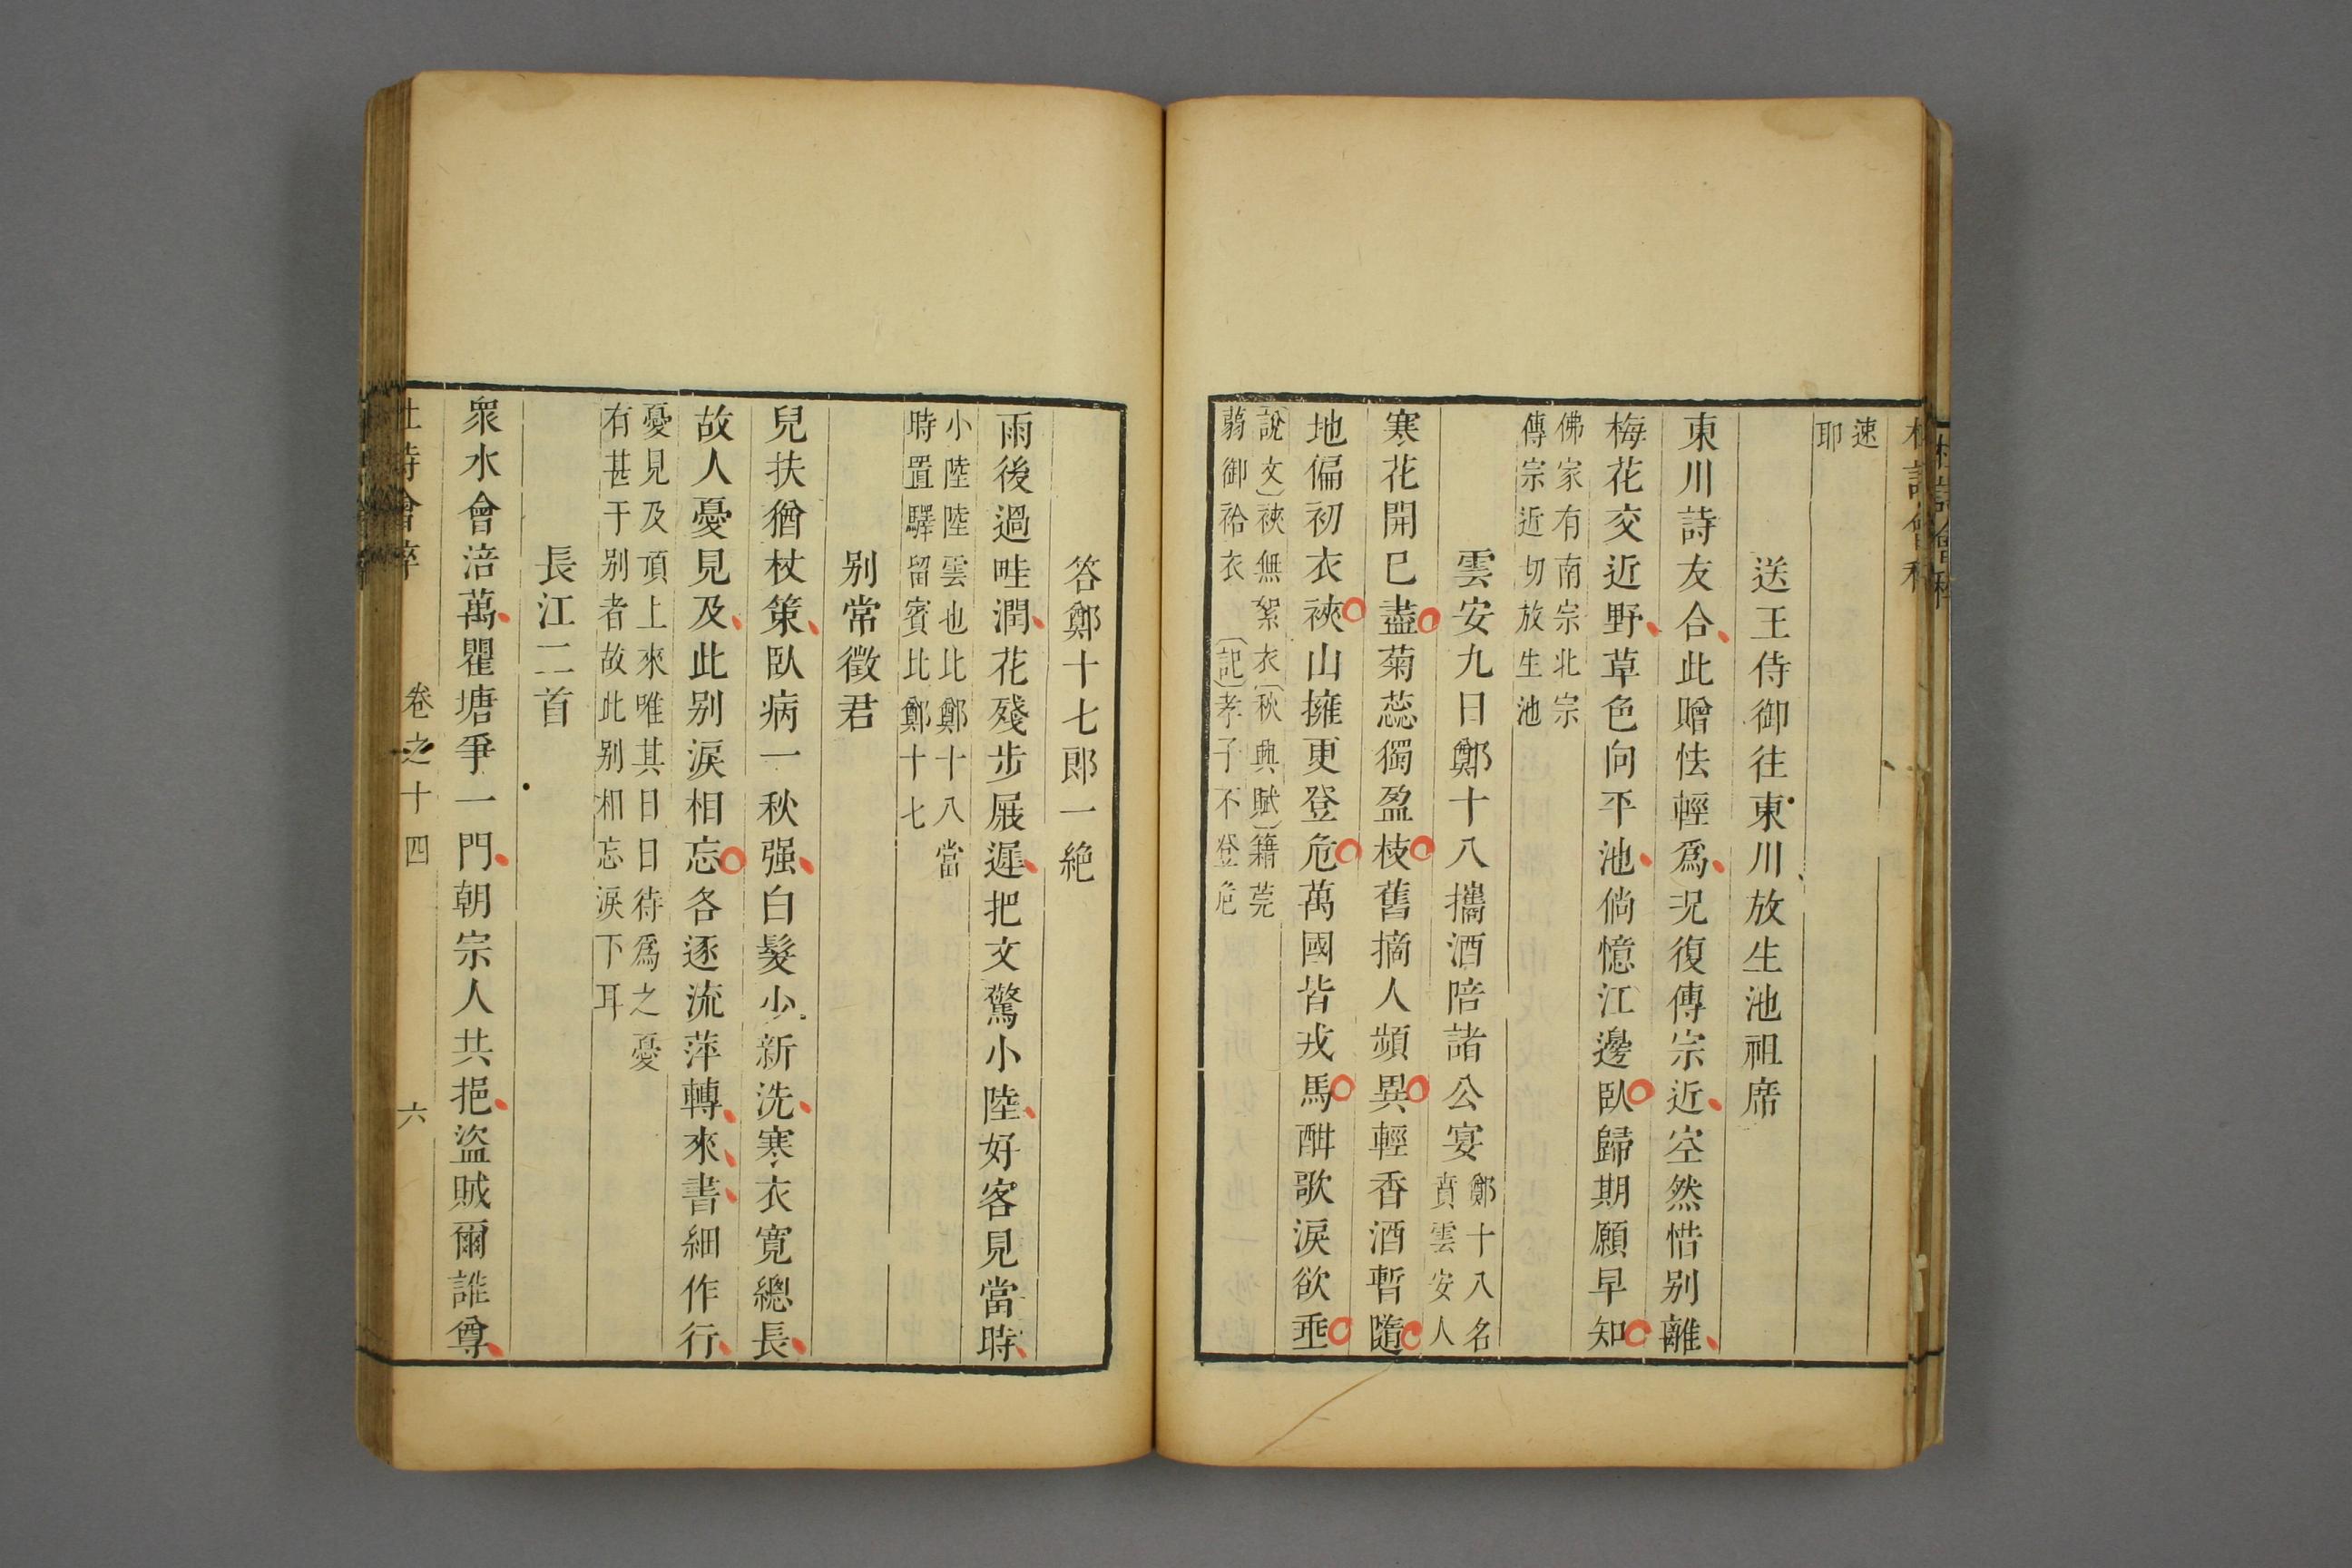 速
耶
送王侍御往東川放生池祖席
東川詩友合此贈怯輕爲況復傳宗近空然惜别離
梅花交近野草色向平池倘憶江邊臥歸期願早知
佛家有南宗北宗
傳宗近切放生池
雲安九日鄭十八攜酒陪諸公宴
鄭十八名
賁雲安人
寒花開已盡菊蕊獨盈枝舊摘人頻異輕香酒暫隨
地偏初衣裌山擁更登危萬國皆戎馬酣歌淚欲垂
說文裌無絮衣秋興賦籍莞
蒻御袷衣記孝子不登危
答鄭十七郎一絶
雨後過畦潤花殘步屐遲把文驚小陸好客見當時
小陸陸雲也比鄭十八當
時置驛留賓比鄭十七
别常徵君
兒扶猶杖策臥病一秋强白髮少新洗寒衣寛總長
故人憂見及此别淚相忘各逐流萍轉來書細作行
憂見及頂上來唯其日日待爲之憂
有甚于别者故此别相忘淚下耳
長江二首
衆水會涪萬瞿塘爭一門朝宗人共挹盜賊爾誰尊
卷之十四
六